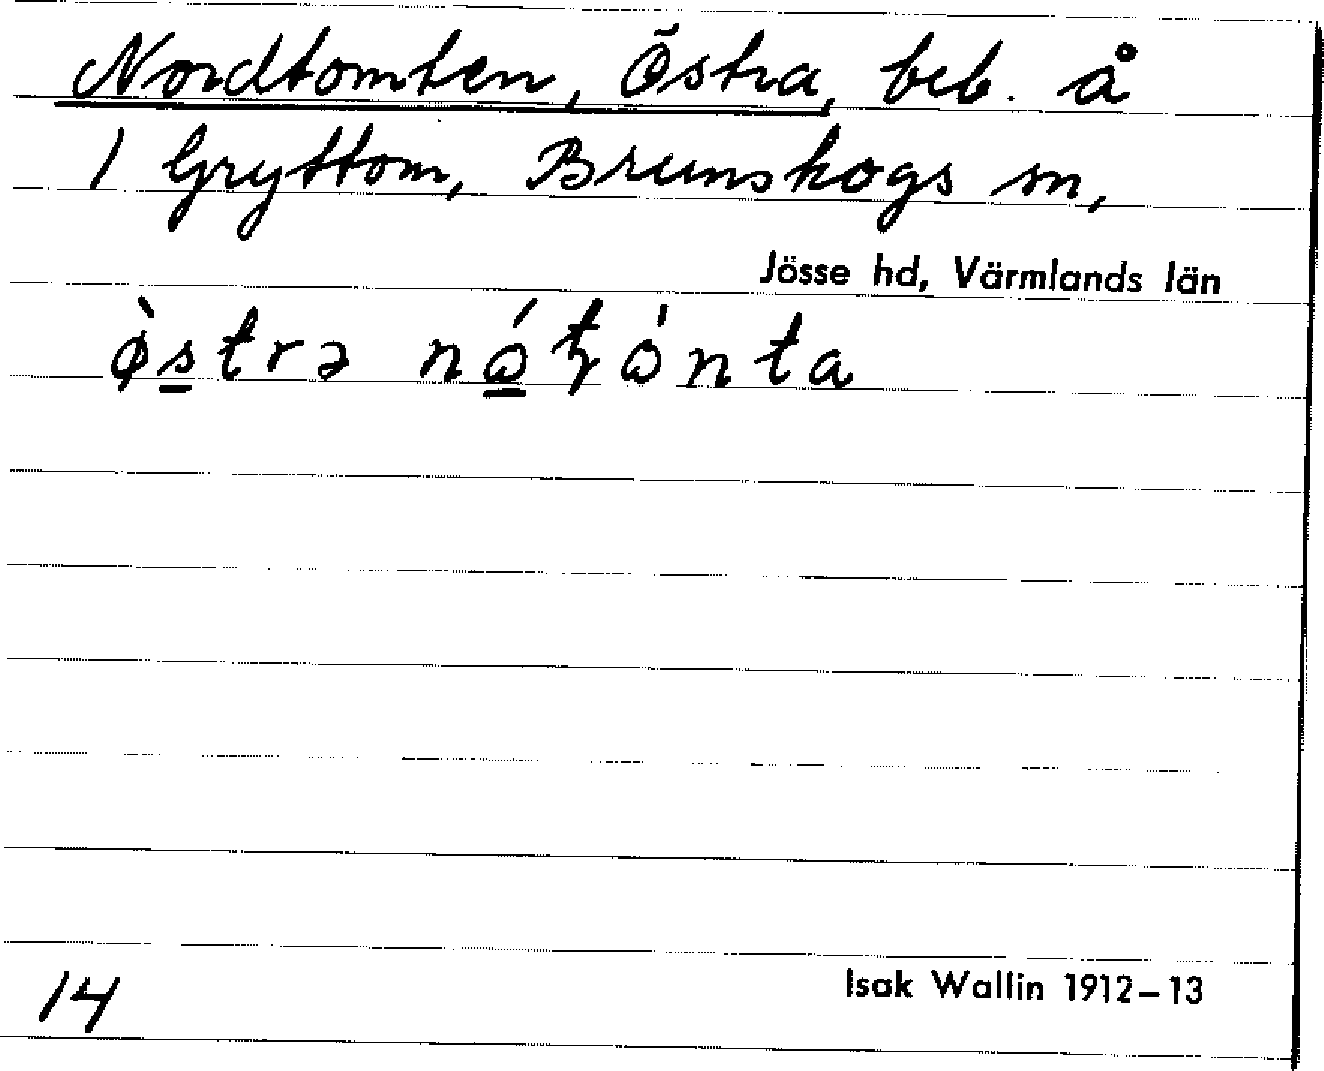 Nordtomten, Östra, beb. å
1 Gryttom, Brunskogs sn,
Jösse hd, Värmlands län
ø̀strə nó̱ʈònta
14
Isak Wallin 1912–13